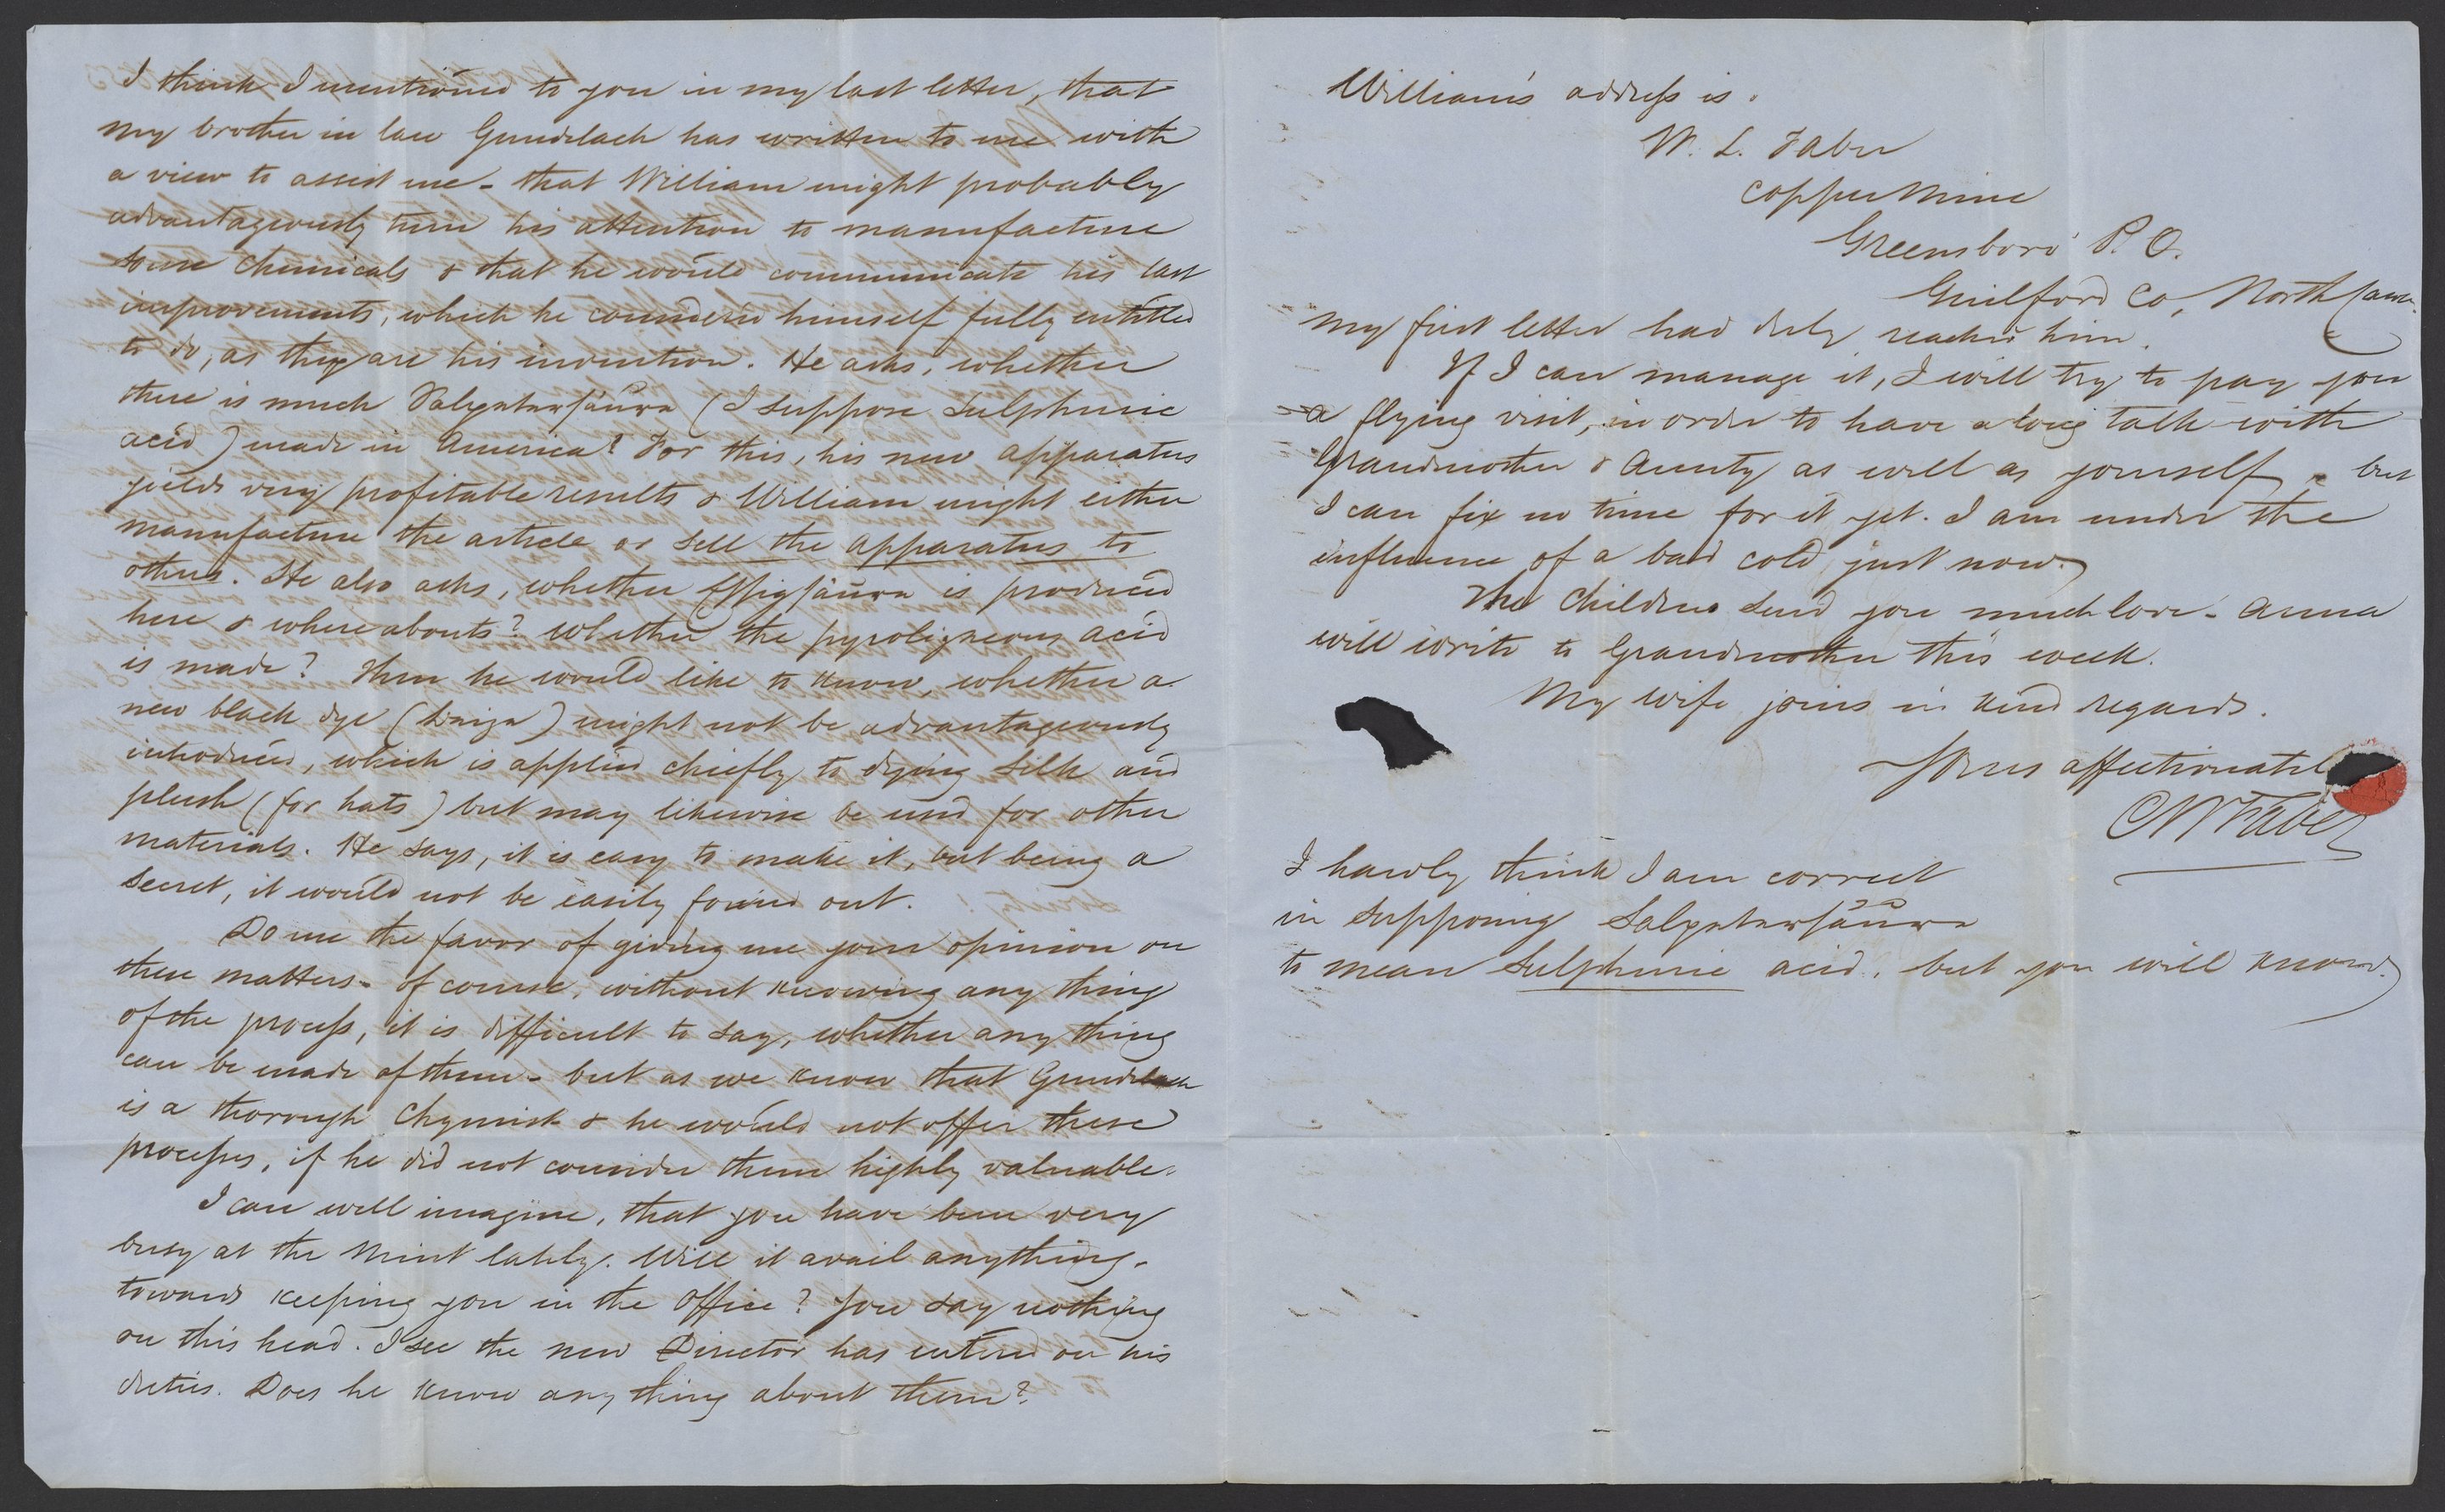 I think I mentioned to you in my last letter, that
my brother in law Gundelach has written to me with
a view to assist me - that William might probably
advantageously turn his attention to manufacture
some chemicals & that he would communicate his last
improvements, which he considered himself fully entitled
to do, as they are his invention. He asks, whether
there is much Salpetersäure (I suppose sulphuric
acid) made in America? For this, his new apparatus
yields very profitable results & William might either
manufacture the article or sell the apparatus to
others. He also asks, whether Essigsäure is produced
here & whereabouts? whether the pyroligneous acid
is made? Then he would like to know, whether a
new black dye () might not be advantageously
introduced, which is applied chiefly to dying silk and
plush (for hats) but may likewise be used for other
materials. He says, it is easy to make it, but being a
secret, it would not be easily found out.
Do me the favor of giving me your opinion on
these matters - of course, without knowing any thing
of the process, it is difficult to say, whether any thing
can be made of them - but as we know that Gundelach
is a thorough Chymist & he would not offer these
processes, if he did not consider them highly valuable.
I can well imagine, that you have been very
busy at the Mint lately. Will it avail anything
towards keeping you in the Office? you say nothing
on this head. I see the new Director has entered on his
duties. Does he know any thing about them?
William's address is.
W. L. Faber
Copper Mine
Greensboro' P. O.
Guilford Co, North Carol.
my first letter had duly reached him.
If I can manage it, I will try to pay you
a flying visit, in order to have a long talk with
Grandmother & Aunty as well as yourself - but
I can fix no time for it yet. I am under the
influence of a bad cold just now.
The Children send you much love - Anna
will write to Grandmother this week.
My wife joins in kind regards.
Yours affectionatel
CW Faber
I hardly think I am correct
in supposing Salpetersäure
to mean sulphuric acid, but you will know.